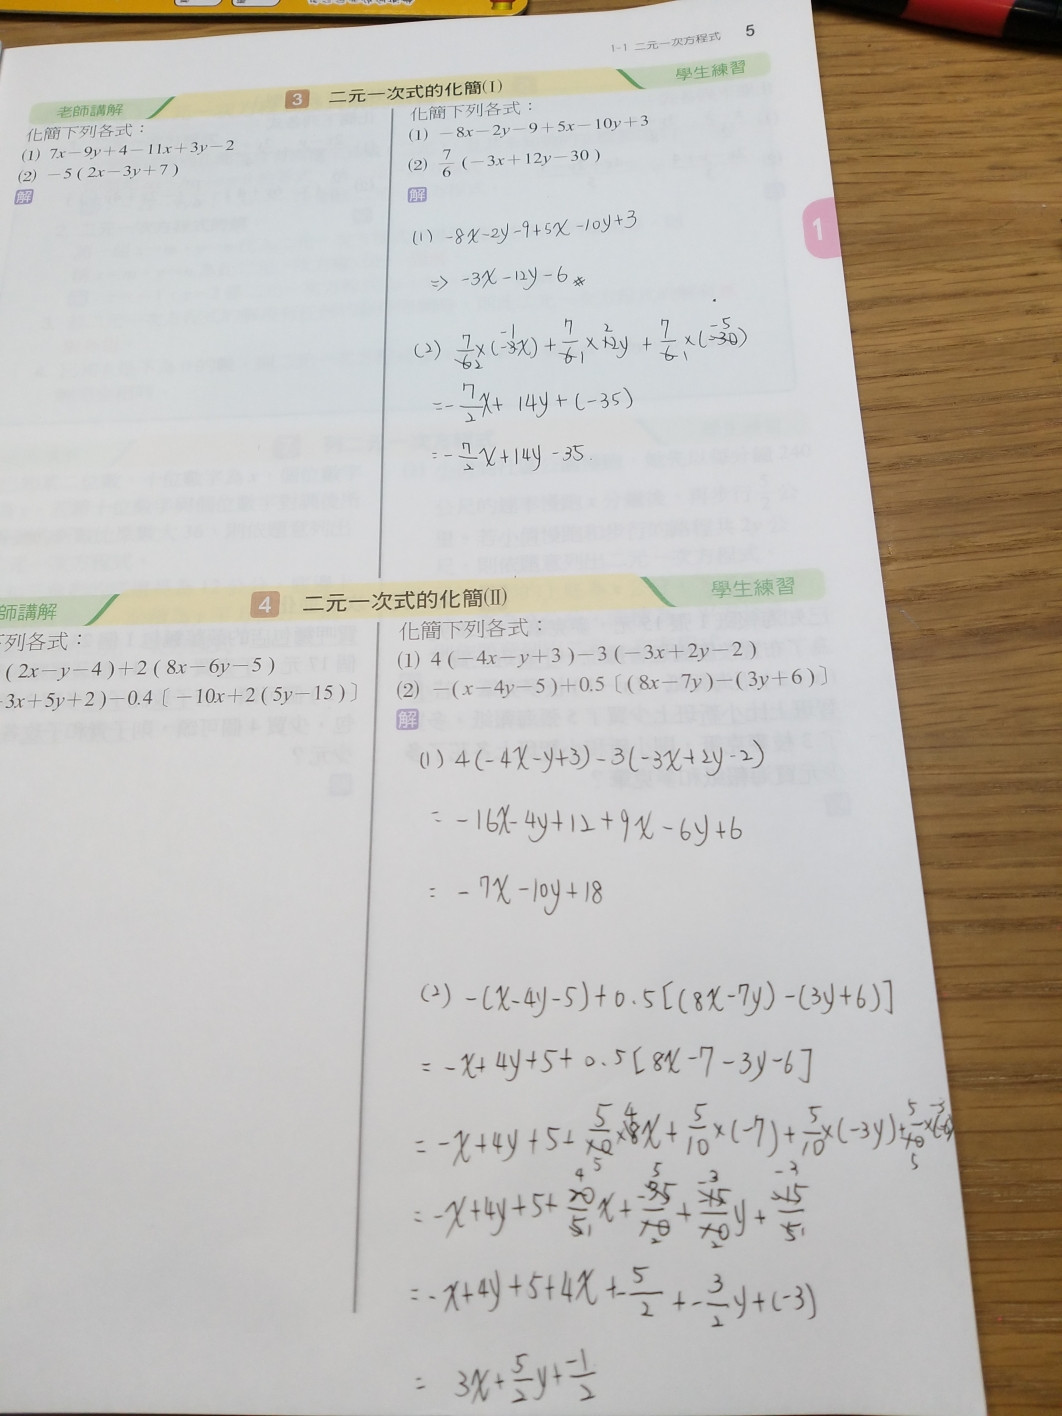 1-1 二元一次方程式 5
老師講解
3 二元一次式的化簡(I)
學生練習
化簡下列各式：
(1) 7x－9y＋4－11x＋3y－2
(2) －5（2x－3y＋7）
解
化簡下列各式：
(1) －8x－2y－9＋5x－10y＋3
(2) 7/6（－3x＋12y－30）
解
1
(1) -8x-2y-9+5x-10y+3
=> -3x-12y-6 #
(2) 7/6 2 ×(-3x) -1 + 7/6 1 × 12y 2 + 7/6 1 ×(-30) -5
=-7/2x+ 14y+(-35)
=-7/2x+14y-35
師講解
4 二元一次式的化簡(II)
學生練習
列各式：
（2x－y－4）＋2（8x－6y－5）
3x＋5y＋2）－0.4〔－10x＋2（5y－15）〕
化簡下列各式：
(1) 4（－4x－y＋3）－3（－3x＋2y－2）
(2) －（x－4y－5）＋0.5〔（8x－7y）－（3y＋6）〕
解
(1) 4(-4x-y+3)-3(-3x+2y-2)
= -16x-4y+12+9x-6y+6
= -7x-10y+18
(2) -(x-4y-5)+0.5[(8x-7y)-(3y+6)]
= -x+4y+5+0.5[8x-7-3y-6]
= -x+4y+5+ 5/10 5 × 8x 4 + 5/10 ×(-7)+ 5/10 ×(-3y)+ 5/10 5 ×(-6) -3
= -x+4y+5+ 20/5 4 1 x+ -35/10 5 2 + -15/10 -3 2 y+ -15/5 -3 1
= -x+4y+5+4x+-5/2+-3/2y+(-3)
= 3x+5/2y+-1/2